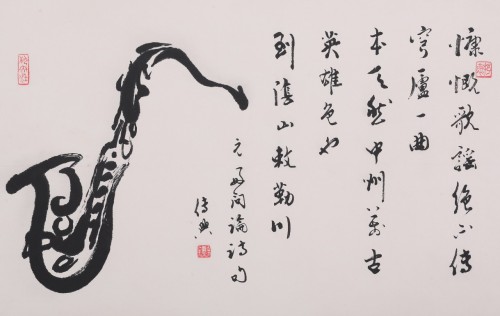 慷慨歌謠絕不傳
穹廬一曲
本天然中州萬古
英雄氣也
到陰山敕勒川
元好問論詩句